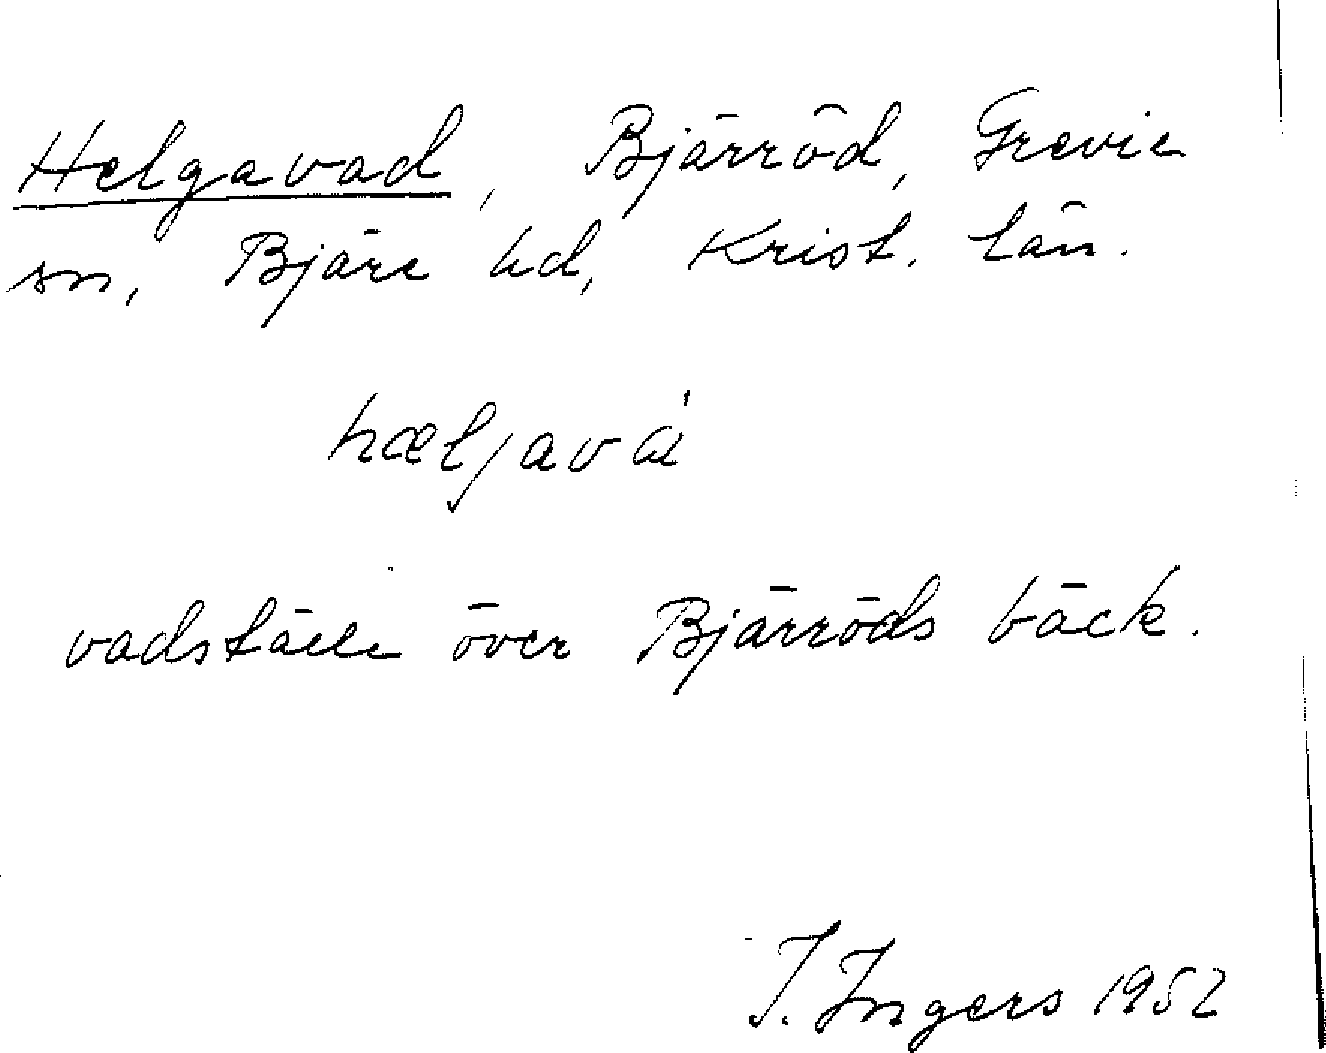 Helgavad, Bjärröd, Grevie
sn, Bjäre hd, Krist. län.
hæljavá
vadställe över Bjärröds bäck.
I. Ingers 1952